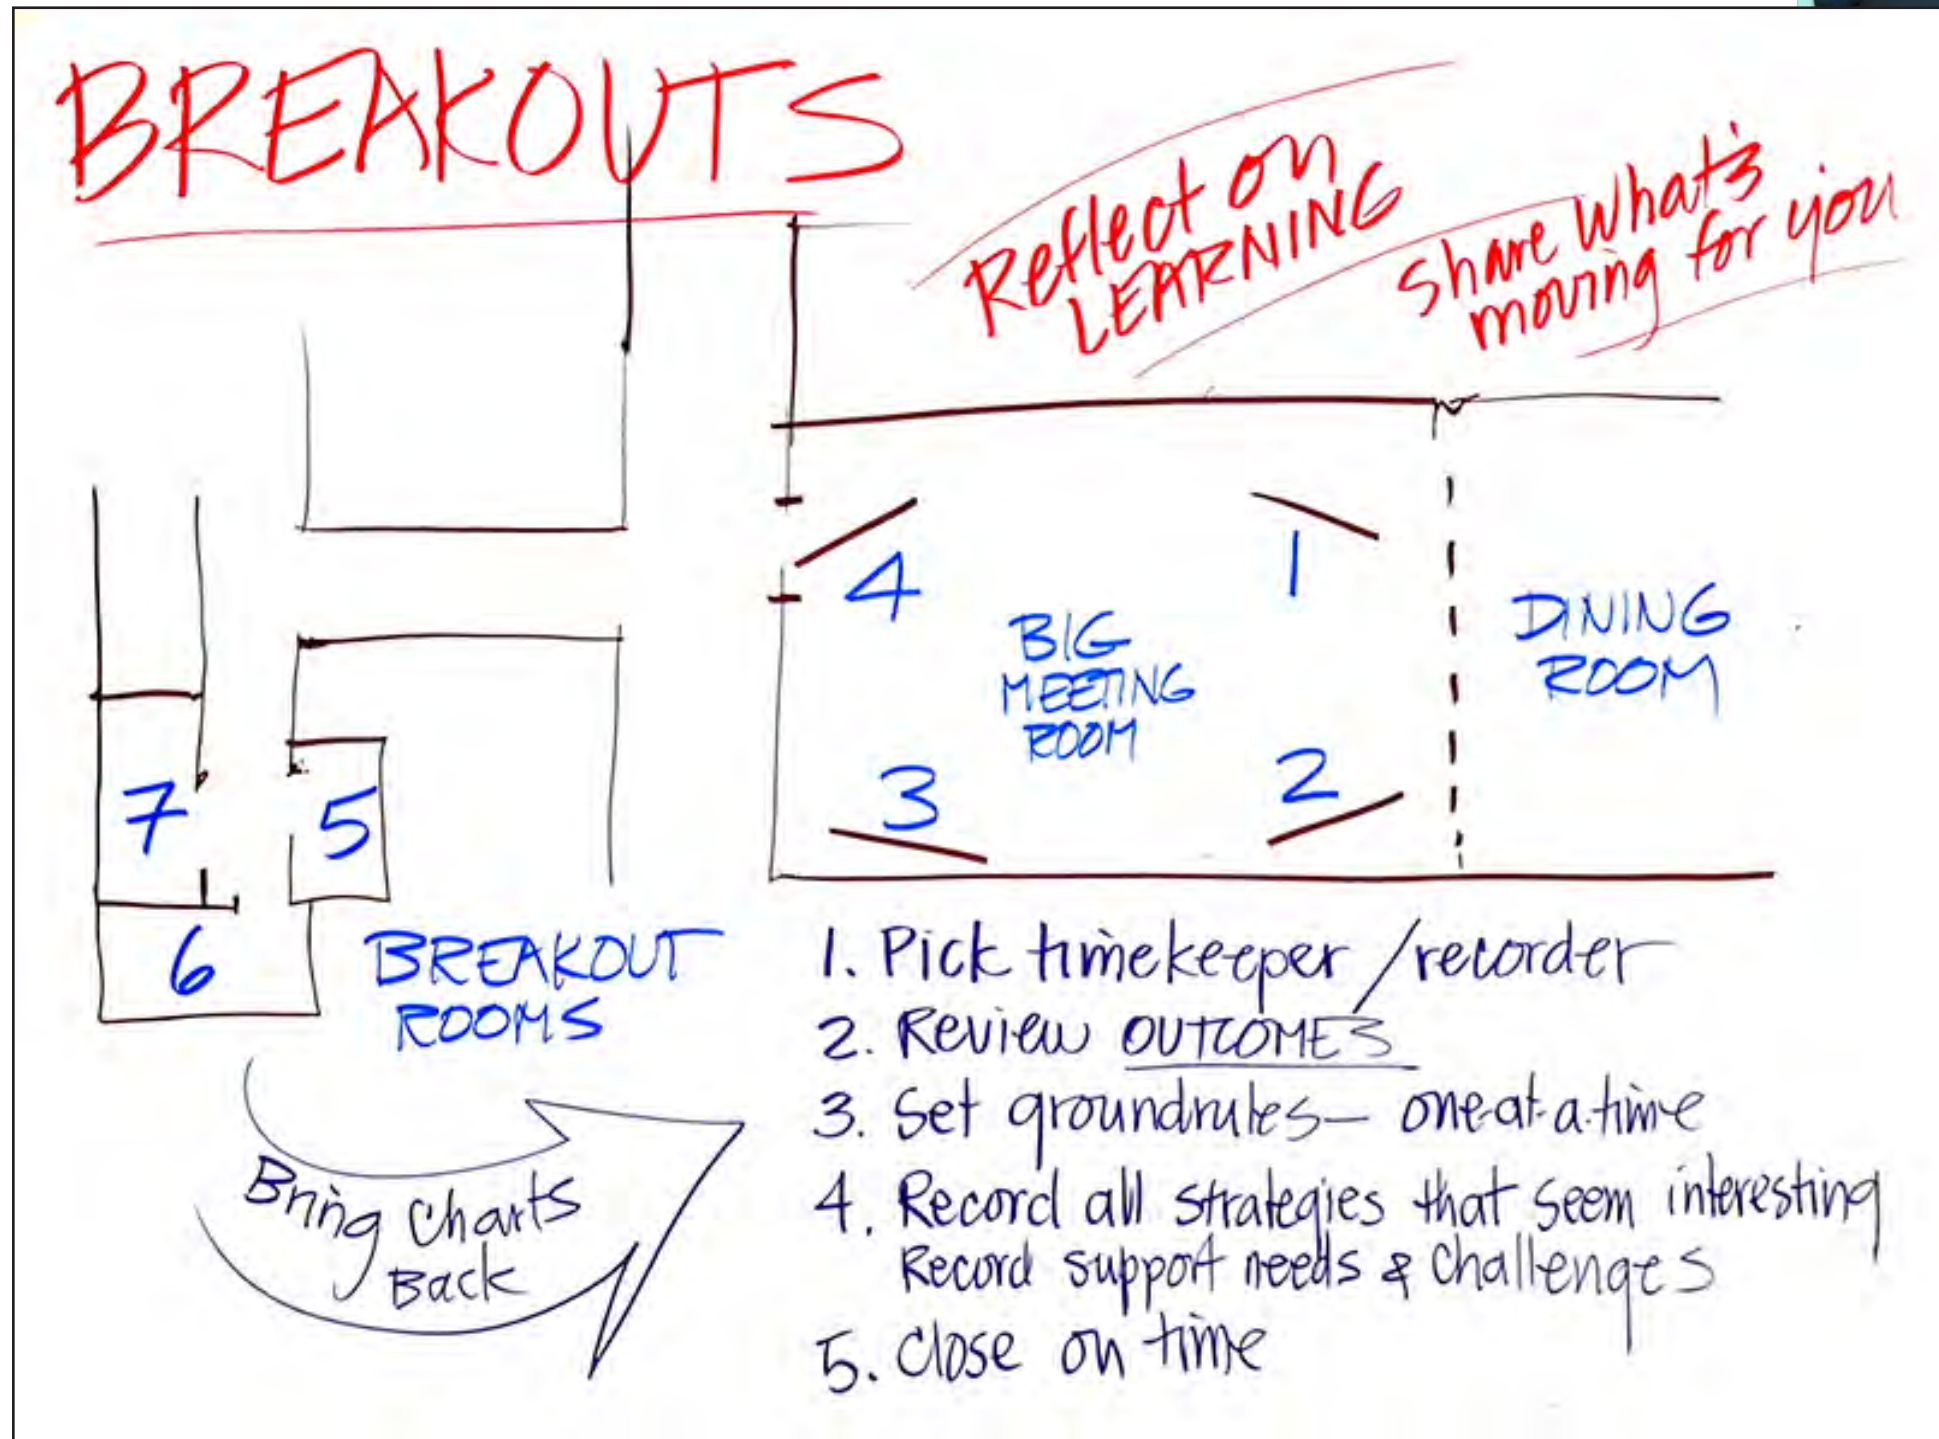 BREAKOUTS
Reflect on
LEARNING
Share What's
moving for you
4
1
BIG
MEETING
ROOM
DINING
ROOM
3
2
7
5
6
BREAKOUT
ROOMS
Bring Charts
Back
1. Pick timekeeper / recorder
2. Review OUTCOMES
3. Set groundrules - one-at-a-time
4. Record all strategies that seem interesting
Record support needs & challenges
5. Close on time